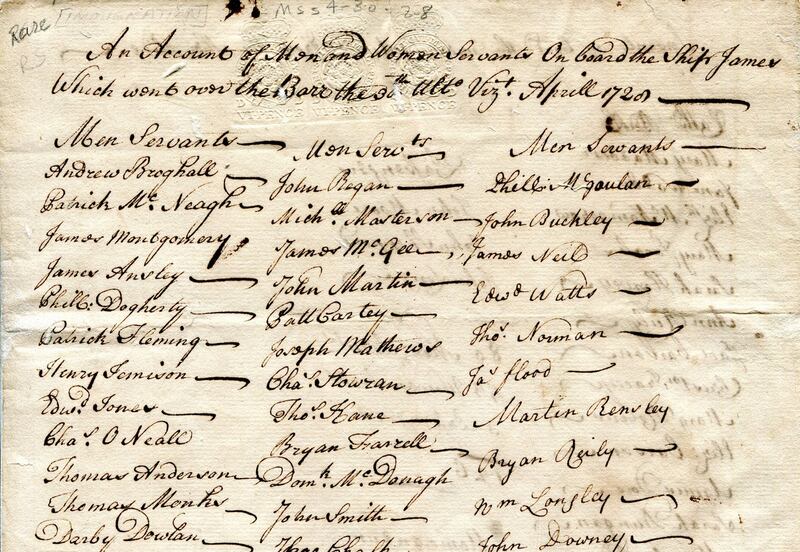 Rare
[IMMIGRATION]
Mss 4-30-28
RS
An Account of Men and Women Servants On board the Ship James
Which went over the Barr the 30th Ulto. Vizt. Aprill 1728
VI PENCE VI PENCE VI PENCE
Men Servants
Andrew Broghall
Patrick Mc. Neagh
James Montgomery
James Ansley
Phill: Dogherty
Patrick Fleming
Henry Jemison
Edwd. Jones
Chas. O Neall
Thomas Anderson
Thomas Monks
Darby Dowlan
Men Servts
John Regan
Michll Masterson
James McGee
John Martin
Patt Cartey
Joseph Mathews
Chas. Stowran
Thos. Kane
Bryan Farrell
Domk. McDonagh
John Smith
Men Servants
Phill: McGoulan
John Buckley
James Neild
Edwd Watts
Thos. Norman
Jas. flood
Martin Rensley
Bryan Reily
Wm Longley
John Downey